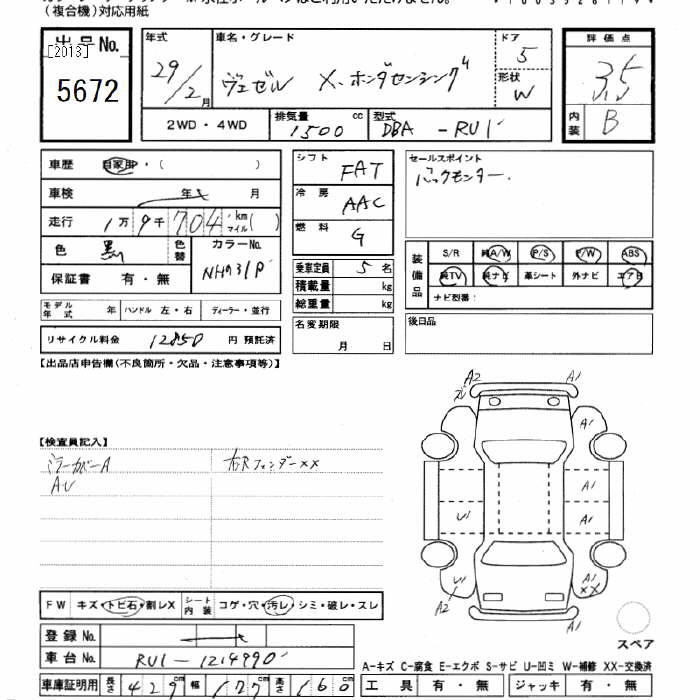 (複合機)対応用紙
出品No.
[2013]
5672
年式
29/2月
車名・グレード
ヴェゼル X・ホンダセンシング
ドア
5
形状
W
評価点
3.5
内装
B
2WD・4WD
排気量 1500 cc
型式 DBA-RU1
車歴 自家用・( )
車検 年 月
走行 1万9千704 km マイル( )
色 黒
色替
カラーNo.
NH731P
保証書 有・無
モデル年式 年
ハンドル 左・右
ディーラー・並行
リサイクル料金 12850 円 預託済
シフト FAT
冷房 AAC
燃料 G
乗車定員 5名
積載量 kg
総重量 kg
名変期限
月 日
セールスポイント
バックモニター.
装備品
S/R 純A/W P/S P/W ABS
純TV 純ナビ 革シート 外ナビ エアB
ナビ型番:
後日品
【出品店申告欄(不良箇所・欠品・注意事項等)】
【検査員記入】
ミラーカバーA
AU
右Rフェンダー××
A2
A1
A1
A1
A1
U1
U1
A2
A1
A1
××
FW キズ・トビ石・割レX
シート内装 コゲ・穴・汚レ・シミ・破レ・スレ
登録No.
車台No. RU1-1214990
車庫証明用 長さ 429 幅 177 高さ 160
スペア
A-キズ C-腐食 E-エクボ S-サビ U-凹ミ W-補修 XX-交換済
工具 有・無 ジャッキ 有・無